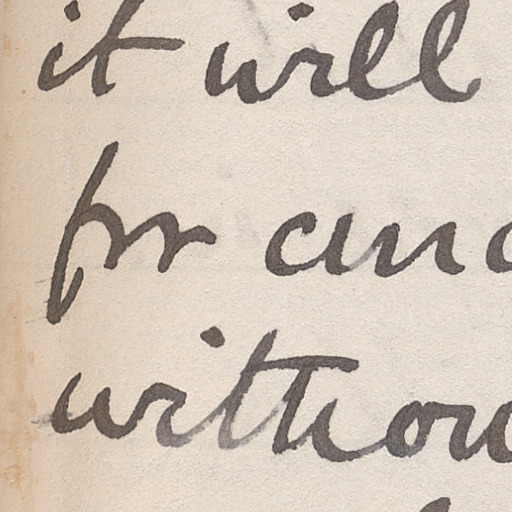 it will
for ano
withou